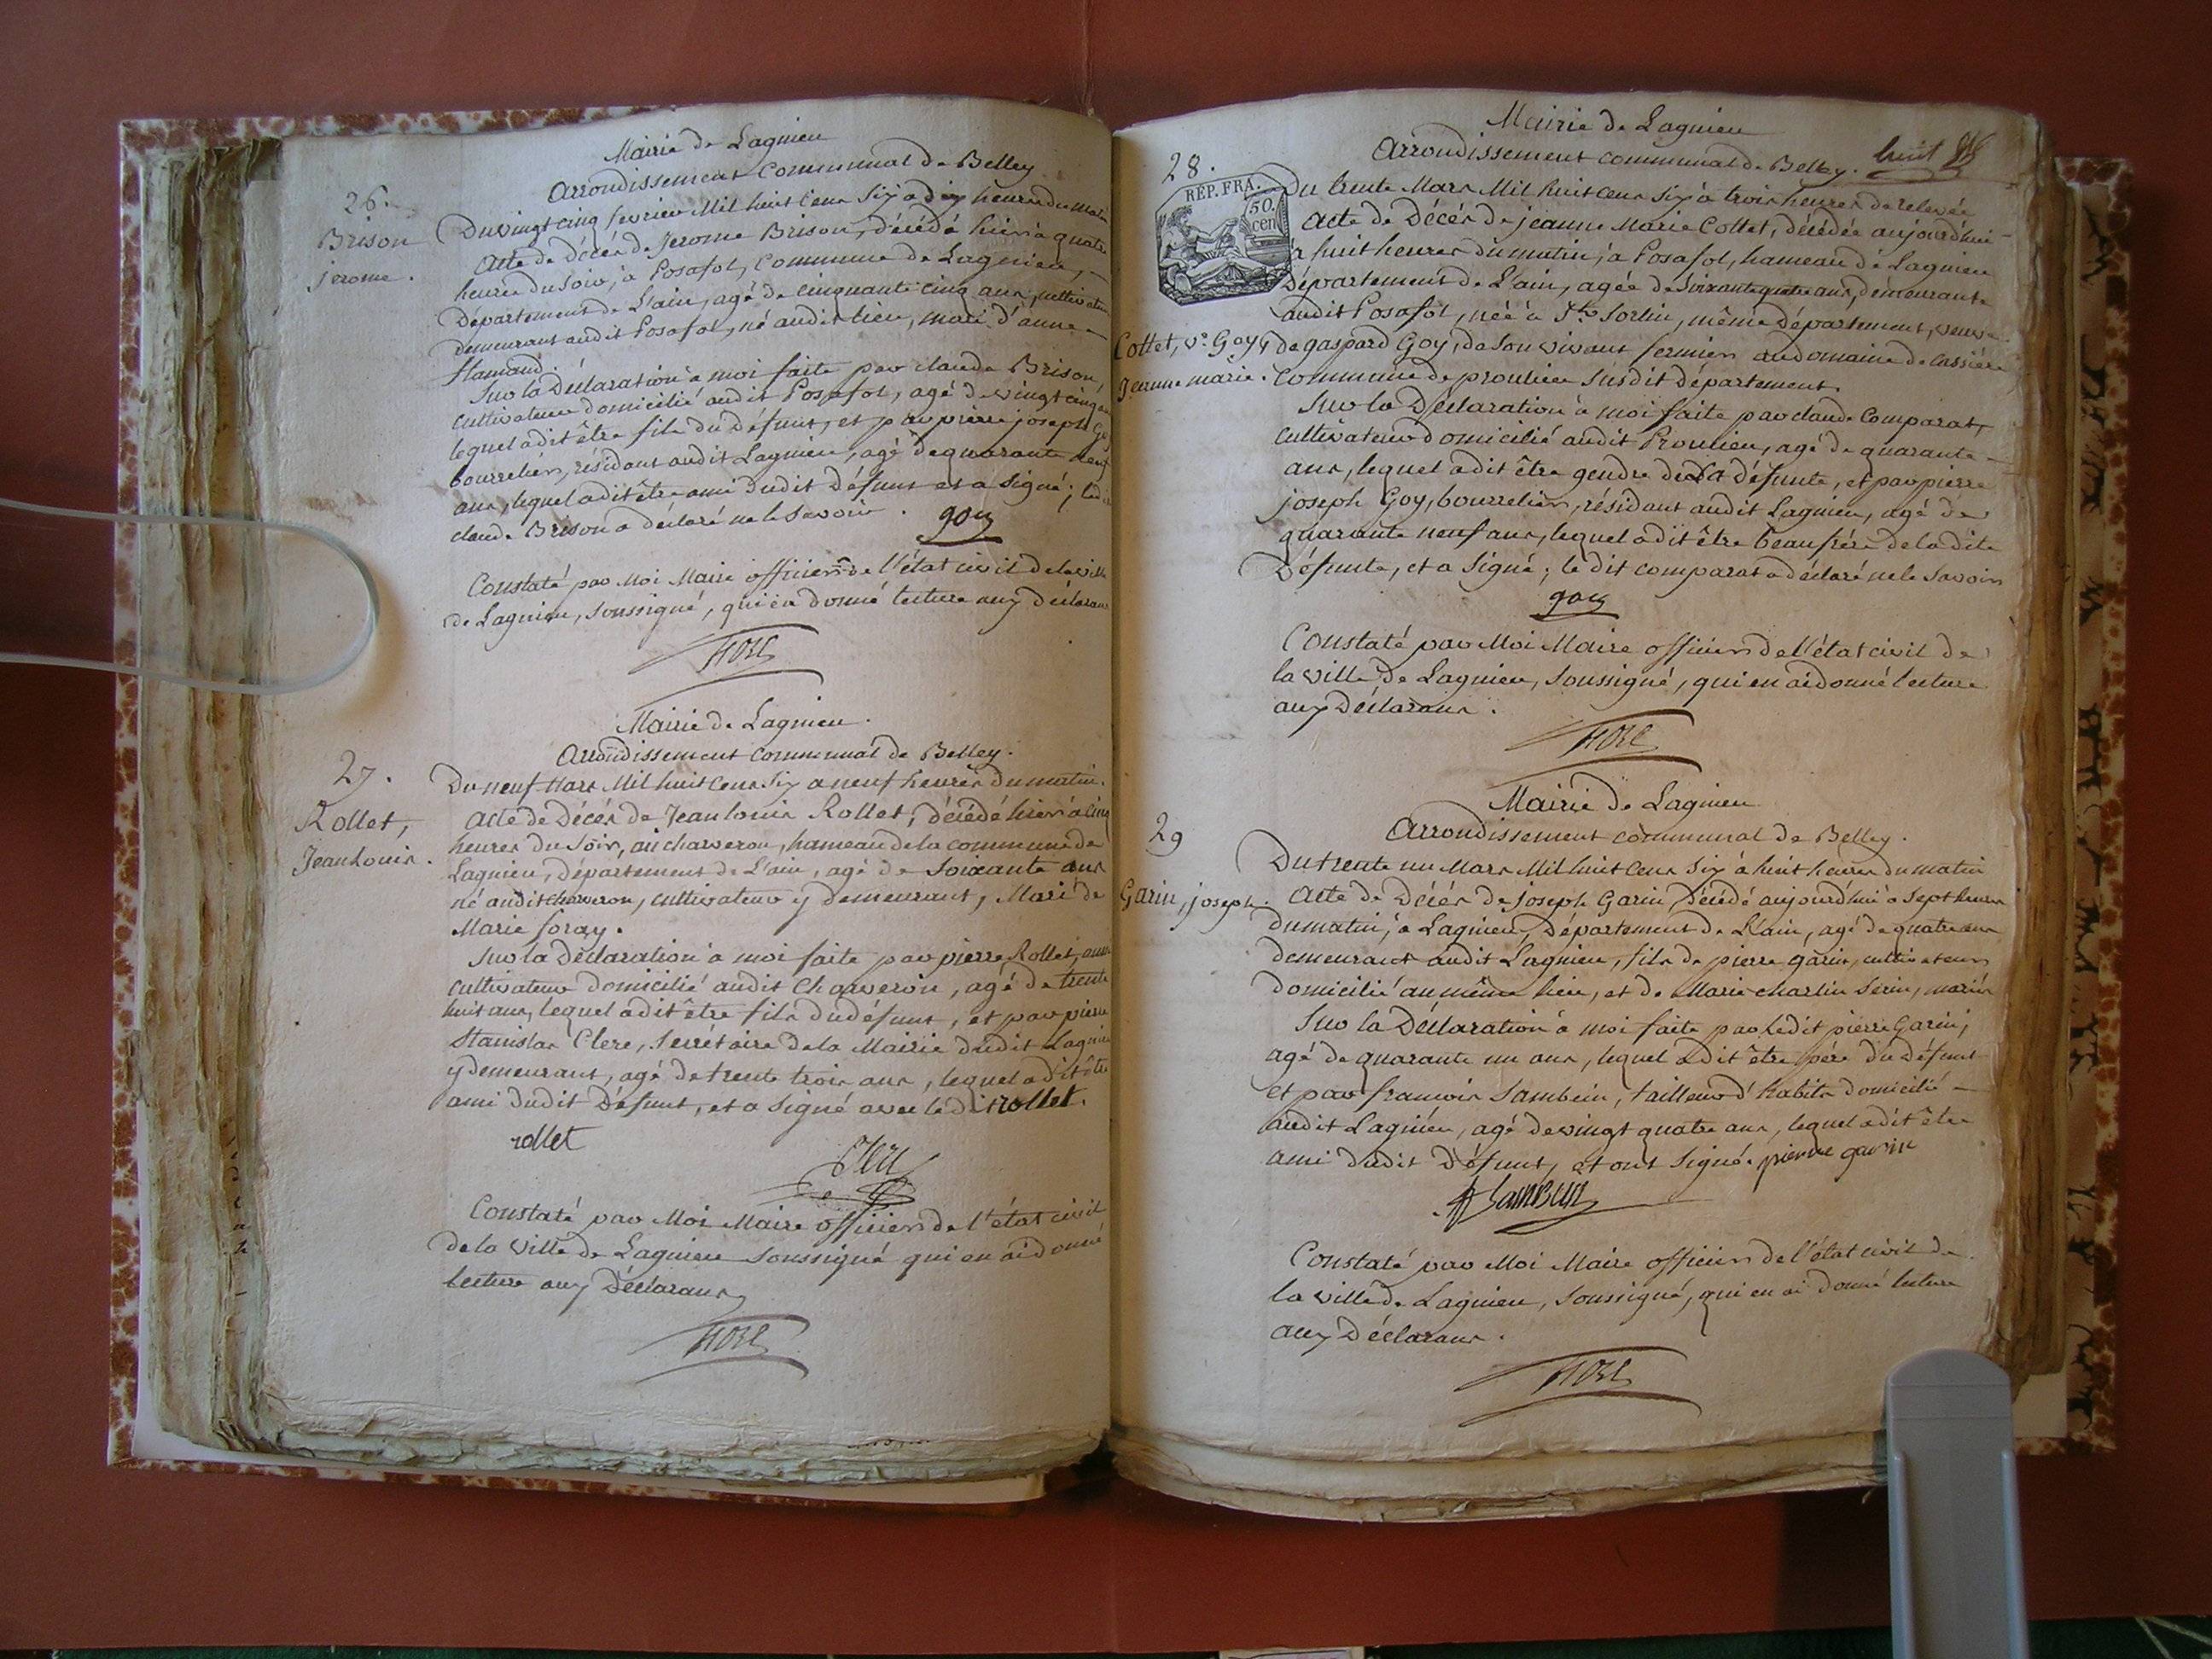 Mairie de Lagnieu
Arrondissement Communal de Belley
26.
Brison
jerome.
Du vingt cinq fevrier Mil huit Cens Six a dix heures du matin
Acte de Décès de Jerome Brison, décédé hier à quatre
heures du Soir, à Posafol, Commune de Lagnieu,
Département de L'ain, agé de Cinquante Cinq ans, cultivateur
demeurant audit Posafol, né audit lieu, mari d'anne
flamand.
Sur la Déclaration à moi faite par claude Brison,
cultivateur domicilié audit Posafol, agé de vingt cinq ans
lequel a dit être fils du défunt, et par pierre joseph Goy
bourrelier, résidant audit Lagnieu, agé de quarante neuf
ans, lequel a dit être ami dudit défunt et a Signé; ledit
claude Brison a déclaré ne le Savoir.
goy
Constaté par Moi Maire officier de l'état civil de la ville
de Lagnieu, Soussigné, qui en donné lecture aux déclarans
Mairie de Lagnieu.
Arrondissement Communal de Belley.
27.
Rollet,
Jean Louis.
Du neuf Mars Mil huit Cens Six a neuf heures du matin.
Acte de Décès de Jean louis Rollet, décédé hier à cinq
heures du Soir, au charveron, hameau de la commune de
Lagnieu, département de L'ain, agé de Soixante ans
né audit charveron, cultivateur y demeurant, Mari de
Marie foray.
Sur la Déclaration à moi faite par pierre Rollet,
cultivateur domicilié audit Charveron, agé de trente
huit ans, lequel a dit être fils du défunt, et par pierre
Stanislas Clere, Secrétaire de la Mairie dudit Lagnieu
y demeurant, agé de trente trois ans, lequel a dit être
ami dudit Défunt, et a Signé avec le dit rollet.
rollet
Clere
Constaté par Moi Maire officier de l'état civil
de la ville de Lagnieu Soussigné qui en ai donné
lecture aux Déclarans
Mairie de Lagnieu
Arrondissement communal de Belley.
huit
28.
REP. FRA.
50.
cen
Cottet, Ve. Goy,
jeanne marie.
Du trente Mars Mil huit Cens Six à trois heures de relevée
Acte de Décès de jeanne Marie Cottet, décédée aujourd'hui
à huit heures du matin, à Posafol, hameau de Lagnieu
Département de L'ain, agée de Soixante quatre ans, demeurante
audit Posafol, née à St. Sorlin, même département, veuve
de gaspard Goy, de Son vivant fermier au domaine de cassière
Commune de proulieu Susdit département.
Sur la Déclaration à moi faite par claude Comparat,
cultivateur domicilié audit Proulieu, agé de quarante
ans, lequel a dit être gendre de La défunte, et par pierre
joseph Goy, bourrelier, résidant audit Lagnieu, agé de
quarante neuf ans, lequel a dit être beaufrère de la dite
Défunte, et a Signé; le dit comparat a déclaré ne le Savoir
goy
Constaté par Moi Maire officier de l'état civil de
la ville de Lagnieu, Soussigné, qui en ai donné lecture
aux Déclarans.
Mairie de Lagnieu
Arrondissement communal de Belley.
29
Garin, joseph.
Du trente un Mars Mil huit Cens Six à huit heures du matin
Acte de Décès de joseph Garin, Décédé aujourd'hui à Sept heures
du matin, à Lagnieu, Département de L'ain, agé de quatre ans
demeurant audit Lagnieu, fils de pierre garin, cultivateur
domicilié au même lieu, et de Marie charlin Serin, mariés
Sur la Déclaration à moi faite par Ledit pierre Garin,
agé de quarante un ans, lequel a dit être père du défunt
et par francois Sambuin, tailleur d'habits domicilié
audit Lagnieu, agé de vingt quatre ans, lequel a dit être
ami dudit Défunt, et ont Signé. pierre garin
Constaté par Moi Maire officier de l'état civil de
la ville de Lagnieu, Soussigné, qui en ai donné lecture
aux Déclarans.